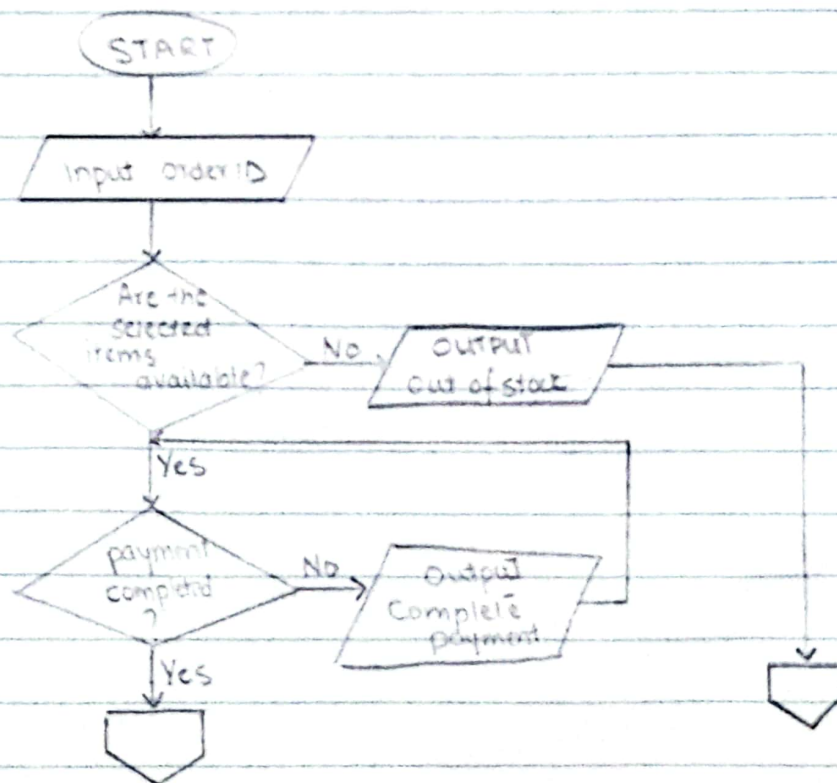 START
Input order ID
Are the
selected
items
available?
No
OUTPUT
Out of stock
Yes
payment
completed
?
No
Output
Complete
payment
Yes